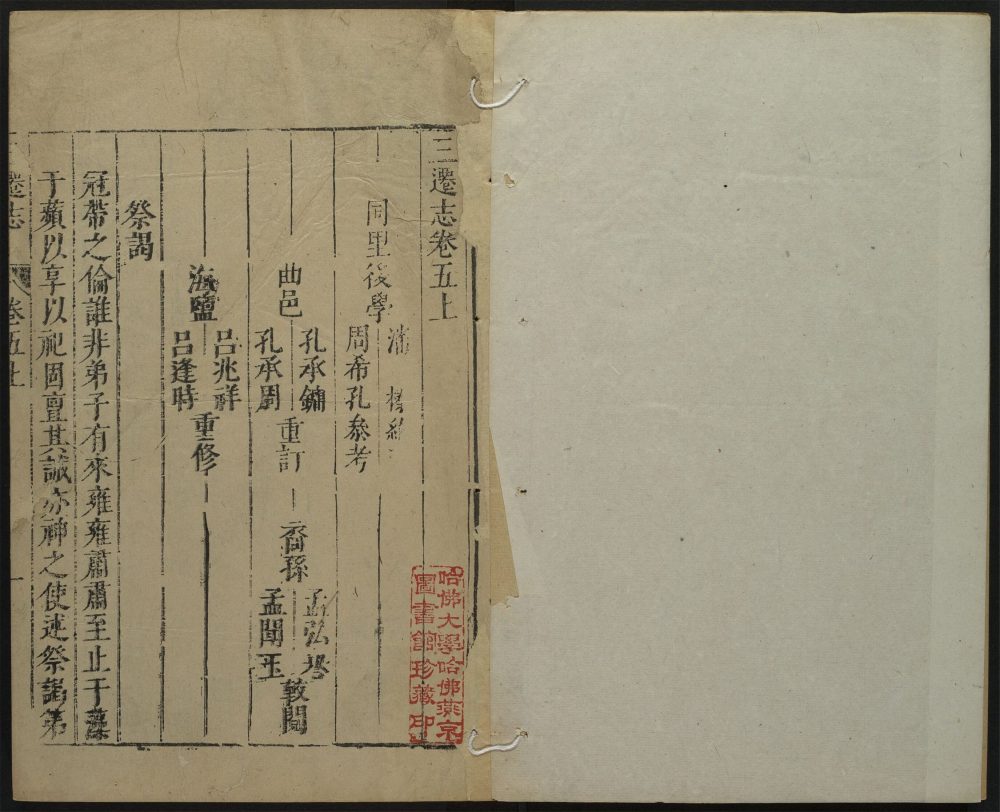 三遷志卷五上
同里後學
潘
周希孔參考
曲邑
孔承鏞
孔承周
重訂
裔孫
孟弘
孟聞玉
較閱
海鹽
呂兆祥
呂逢時
重修
祭謁
冠帶之倫誰非弟子有來雍雍肅肅至止于藻
于蘋以享以祀固亶其誠亦神之使述祭謁第
遷志
卷五上
一
哈佛大學哈佛燕京
圖書館珍藏印